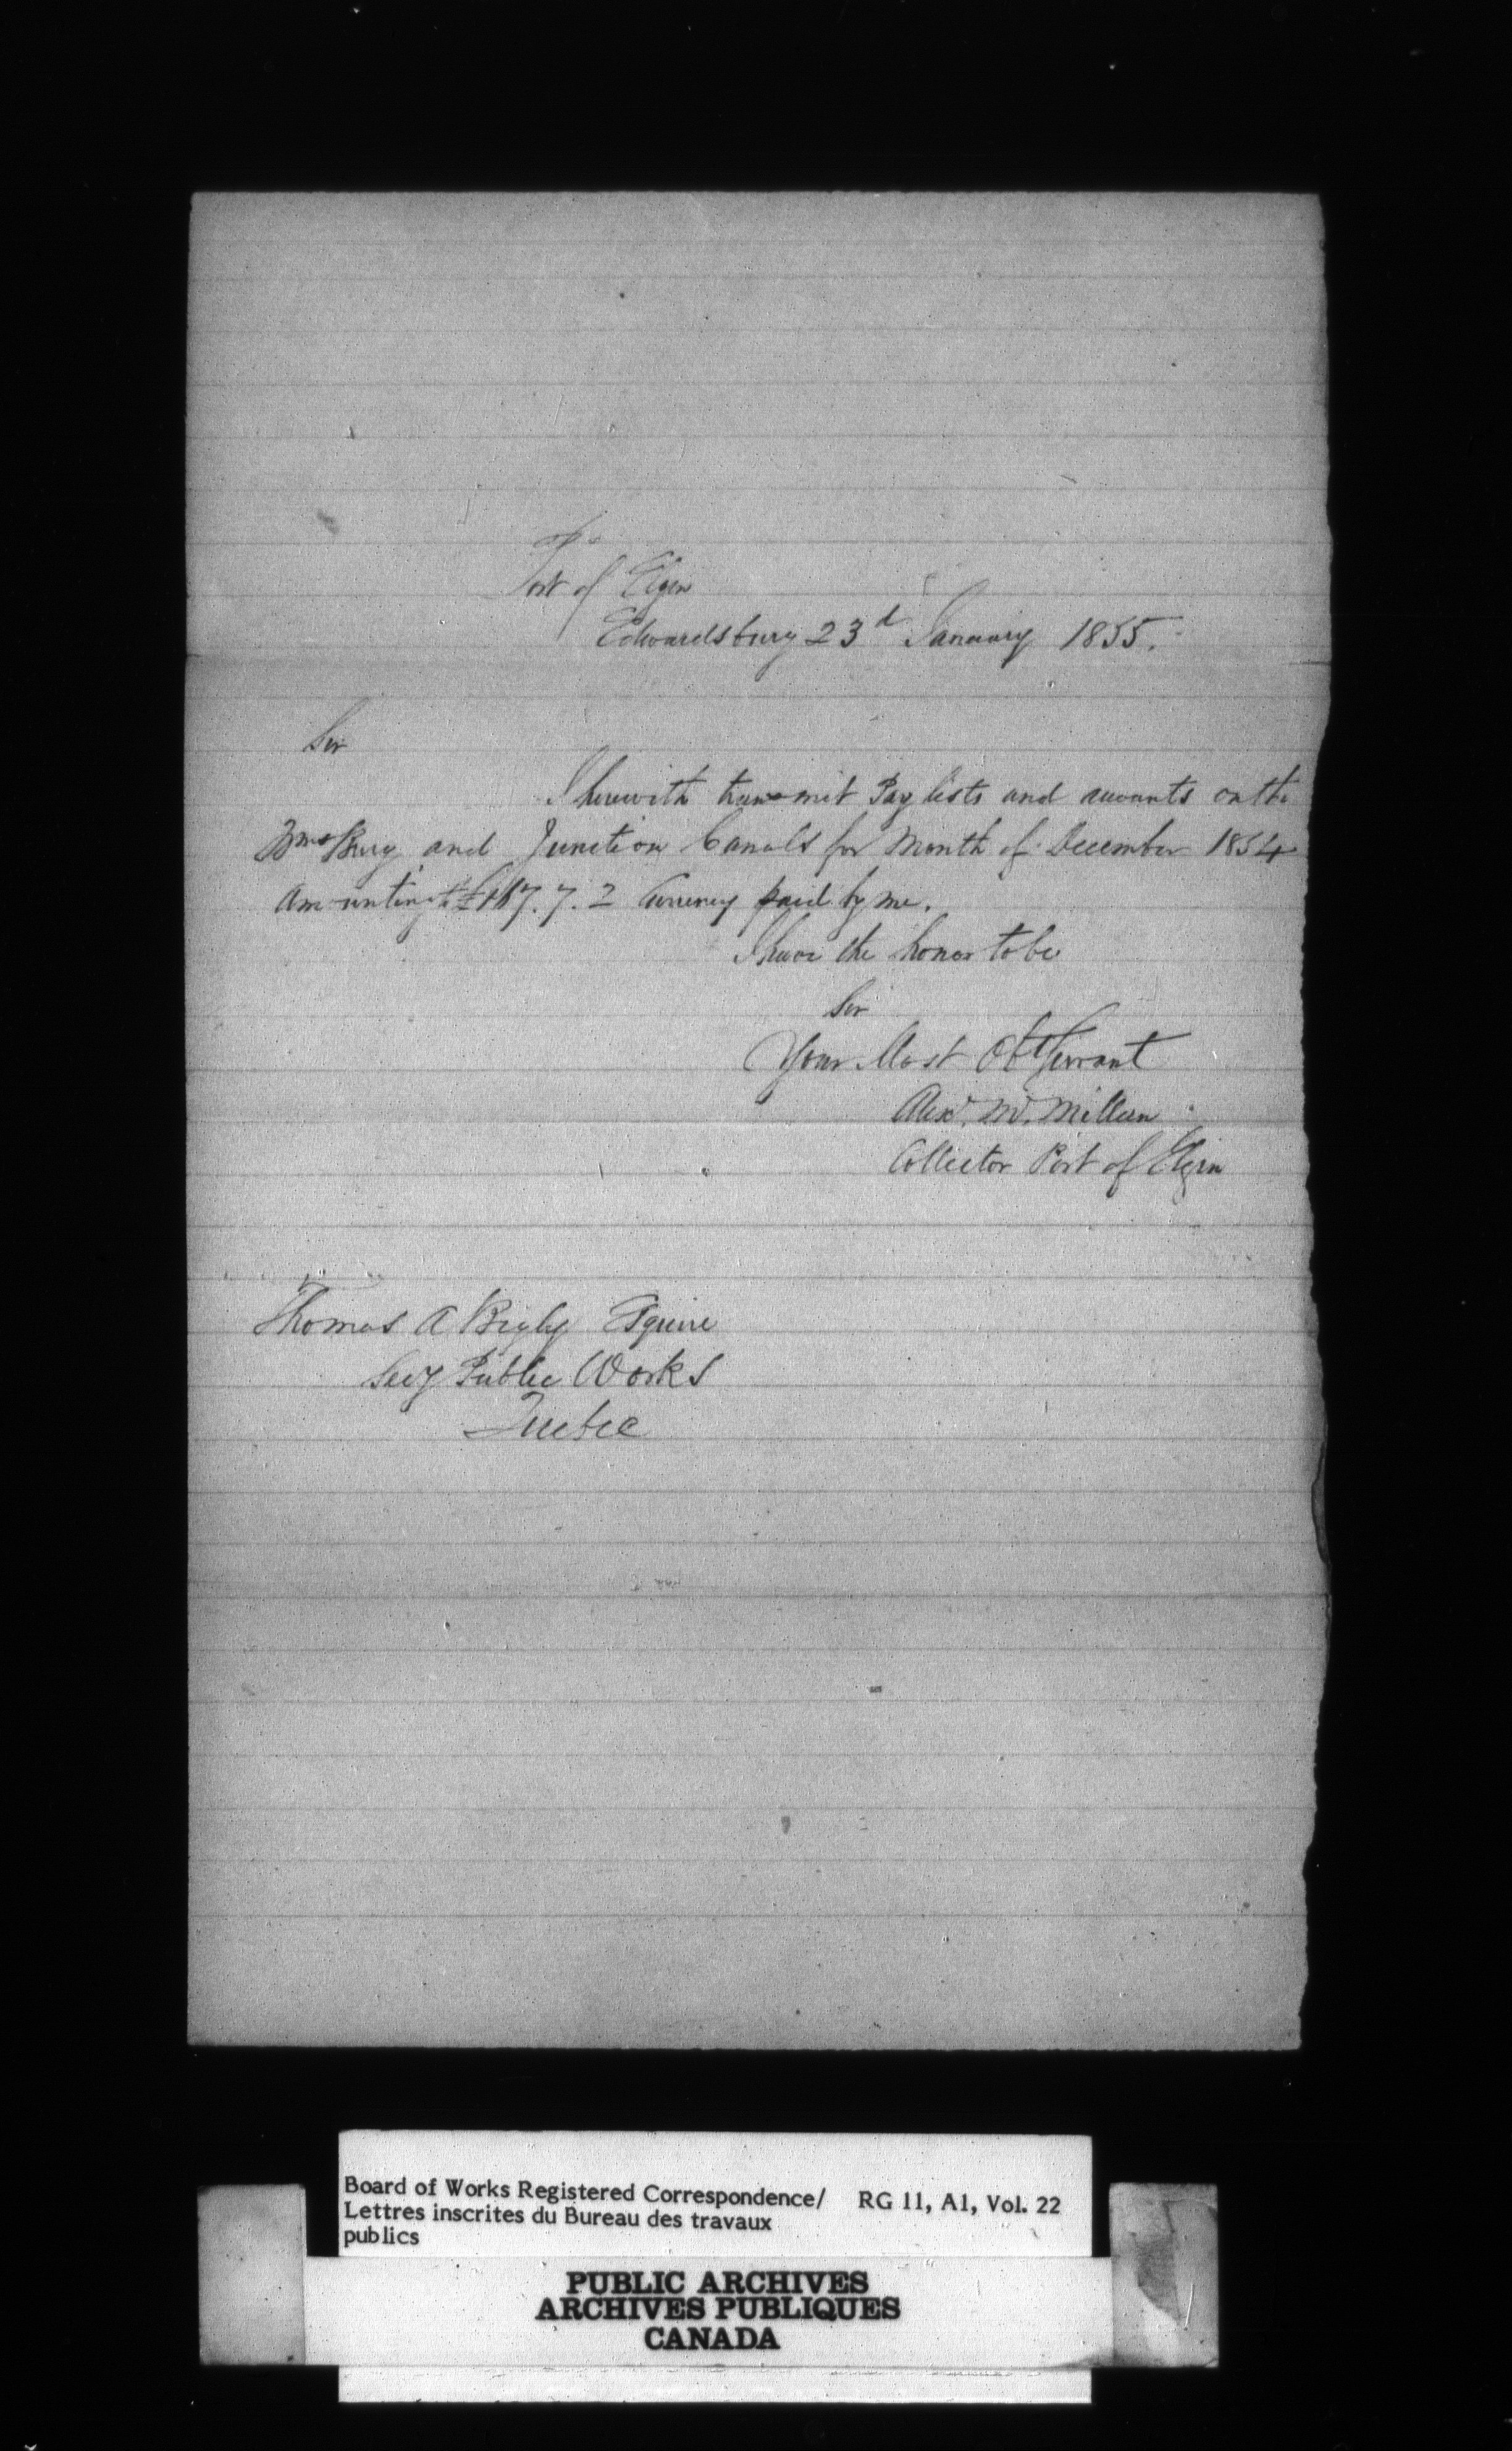 Port of Elgin
Edwardsburg 23d January 1855.
Sir
I herewith transmit Pay lists and accounts on the
WmsBurg and Junction Canals for Month of December 1854
amounting to £117.7.2 Currency paid by me.
I have the honor to be
Sir
Your Most Obt Servant
Alexr. McMillan
Collector Port of Elgin
Thomas A Begly Esquire
Secy Public Works
Quebec
Board of Works Registered Correspondence/ RG 11, A1, Vol. 22
Lettres inscrites du Bureau des travaux
publics
PUBLIC ARCHIVES
ARCHIVES PUBLIQUES
CANADA